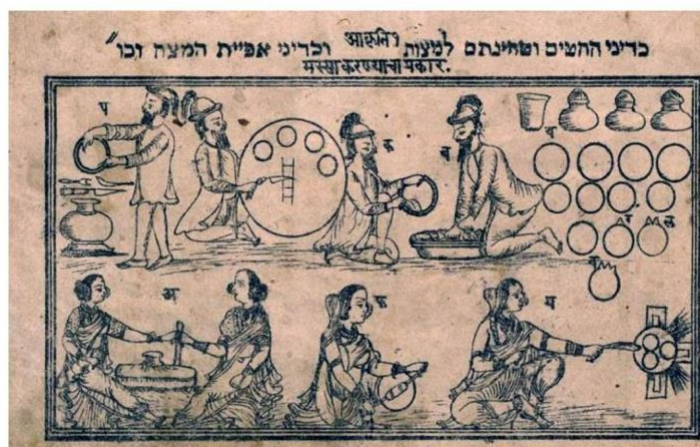 आकृति १
כדיני החטים וטחינתם למצות וכדיני אפיית המצה וכו״
मस्सा करण्याचा प्रकार.
प
क
च
ब
अ
फ
य